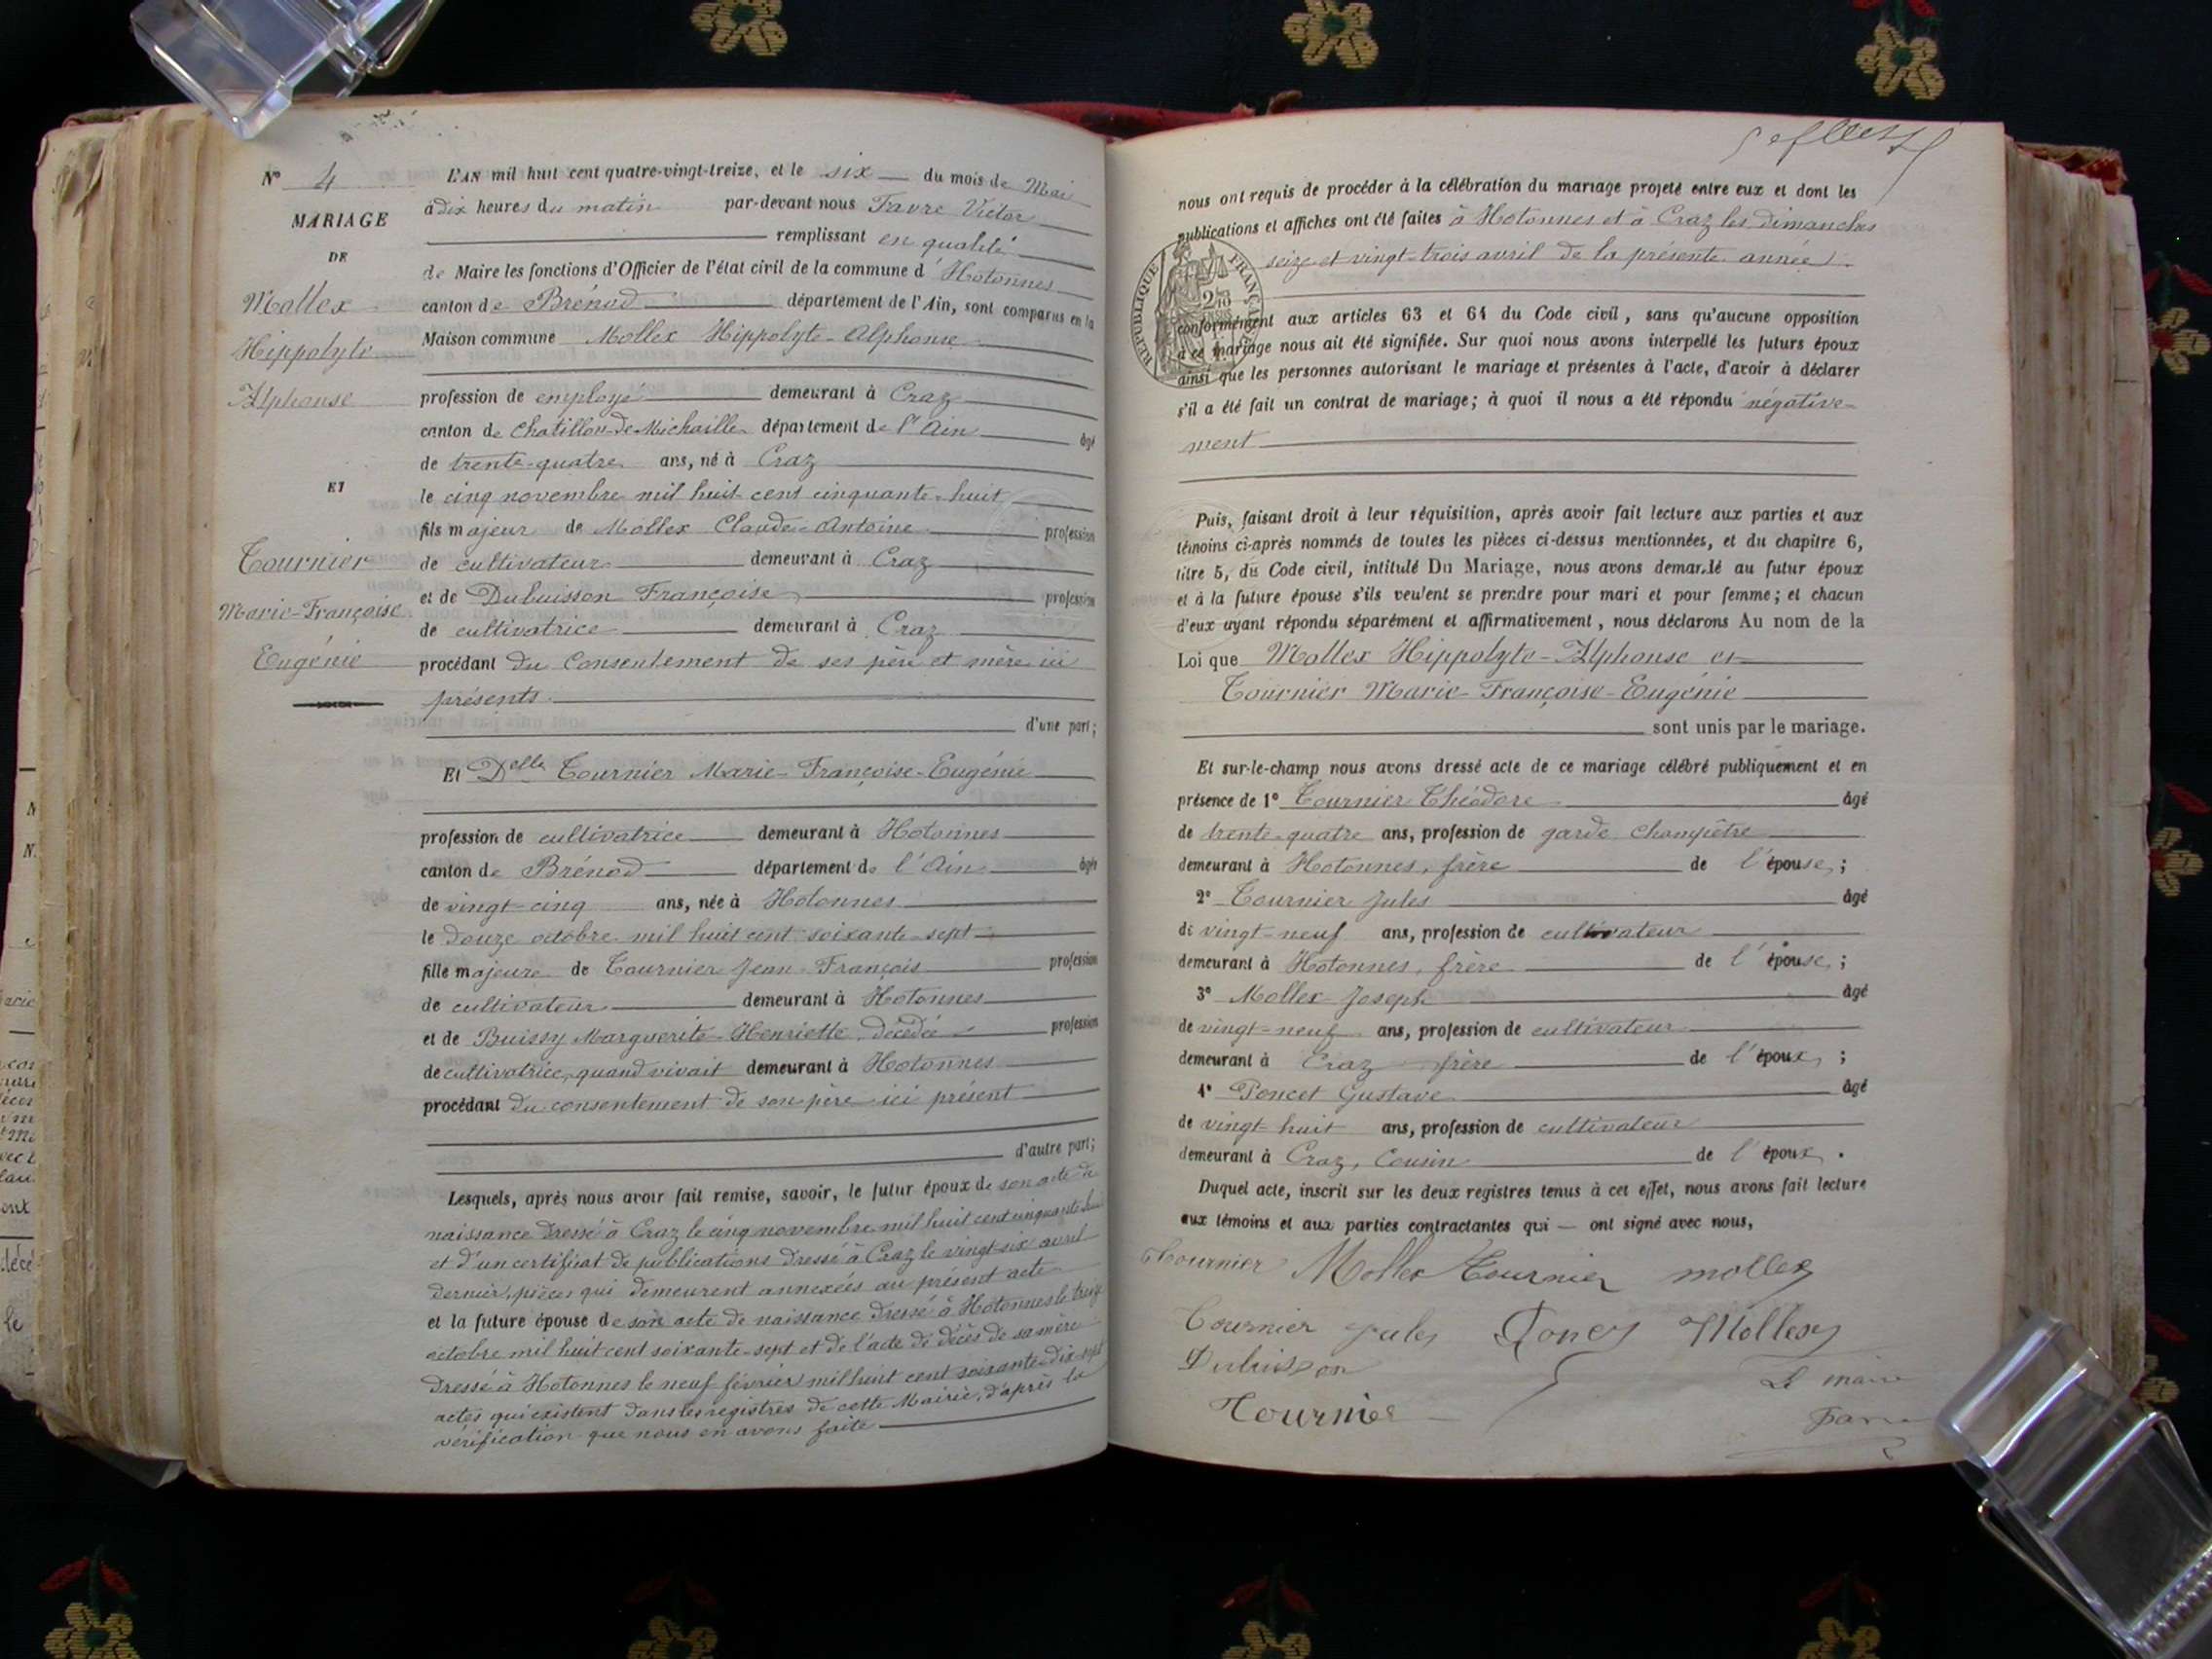 N° 4
MARIAGE
DE
Mollex
Hippolyte
Alphonse
ET
Tournier
Marie-Françoise
Eugénie
L'AN mil huit cent quatre-vingt-treize, et le six du mois de Mai
à dix heures du matin par-devant nous Favre Victor
remplissant en qualité
de Maire les fonctions d'Officier de l'état civil de la commune d'Hotonnes
canton de Brénod département de l'Ain, sont comparus en la
Maison commune Mollex Hippolyte-Alphonse
profession de employé demeurant à Craz
canton de Chatillon-de-Michaille département de l'Ain âgé
de trente-quatre ans, né à Craz
le cinq novembre mil huit cent cinquante-huit
fils majeur de Mollex Claude-Antoine profession
de cultivateur demeurant à Craz
et de Dubuisson Françoise profession
de cultivatrice demeurant à Craz
procédant du consentement de ses père et mère ici
présents
d'une part;
Et Delle Tournier Marie-Françoise-Eugénie
profession de cultivatrice demeurant à Hotonnes
canton de Brénod département de l'Ain âgée
de vingt-cinq ans, née à Hotonnes
le douze octobre mil huit cent soixante-sept
fille majeure de Tournier Jean-François profession
de cultivateur demeurant à Hotonnes
et de Buissy Marguerite-Henriette, décédée profession
de cultivatrice, quand vivait demeurant à Hotonnes
procédant du consentement de son père ici présent
d'autre part;
Lesquels, après nous avoir fait remise, savoir, le futur époux de son acte de
naissance dressé à Craz le cinq novembre mil huit cent cinquante-huit
et d'un certificat de publications dressé à Craz le vingt-six avril
dernier, pièces qui demeurent annexées au présent acte
et la future épouse de son acte de naissance dressé à Hotonnes le treize
octobre mil huit cent soixante-sept et de l'acte de décès de sa mère
dressé à Hotonnes le neuf février mil huit cent soixante-dix-sept
actes qui existent dans les registres de cette Mairie, d'après la
vérification que nous en avons faite
nous ont requis de procéder à la célébration du mariage projeté entre eux et dont les
publications et affiches ont été faites à Hotonnes et à Craz les dimanches
seize et vingt-trois avril de la présente année
RÉPUBLIQUE FRANÇAISE
conformément aux articles 63 et 64 du Code civil, sans qu'aucune opposition
à ce mariage nous ait été signifiée. Sur quoi nous avons interpellé les futurs époux
ainsi que les personnes autorisant le mariage et présentes à l'acte, d'avoir à déclarer
s'il a été fait un contrat de mariage; à quoi il nous a été répondu négative-
ment
Puis, faisant droit à leur réquisition, après avoir fait lecture aux parties et aux
témoins ci-après nommés de toutes les pièces ci-dessus mentionnées, et du chapitre 6,
titre 5, du Code civil, intitulé Du Mariage, nous avons demandé au futur époux
et à la future épouse s'ils veulent se prendre pour mari et pour femme; et chacun
d'eux ayant répondu séparément et affirmativement, nous déclarons Au nom de la
Loi que Mollex Hippolyte-Alphonse et
Tournier Marie-Françoise-Eugénie
sont unis par le mariage.
Et sur-le-champ nous avons dressé acte de ce mariage célébré publiquement et en
présence de 1° Tournier Théodore âgé
de trente-quatre ans, profession de garde champêtre
demeurant à Hotonnes, frère de l'épouse;
2° Tournier Jules âgé
de vingt-neuf ans, profession de cultivateur
demeurant à Hotonnes, frère de l'épouse;
3° Mollex Joseph âgé
de vingt-neuf ans, profession de cultivateur
demeurant à Craz frère de l'époux;
4° Poncet Gustave âgé
de vingt-huit ans, profession de cultivateur
demeurant à Craz, Cousin de l'époux.
Duquel acte, inscrit sur les deux registres tenus à cet effet, nous avons fait lecture
aux témoins et aux parties contractantes qui — ont signé avec nous,
Tournier Mollex Tournier mollex
Tournier Jules Poncet Mollex
Dubuisson
Le maire
Tournier
Favre